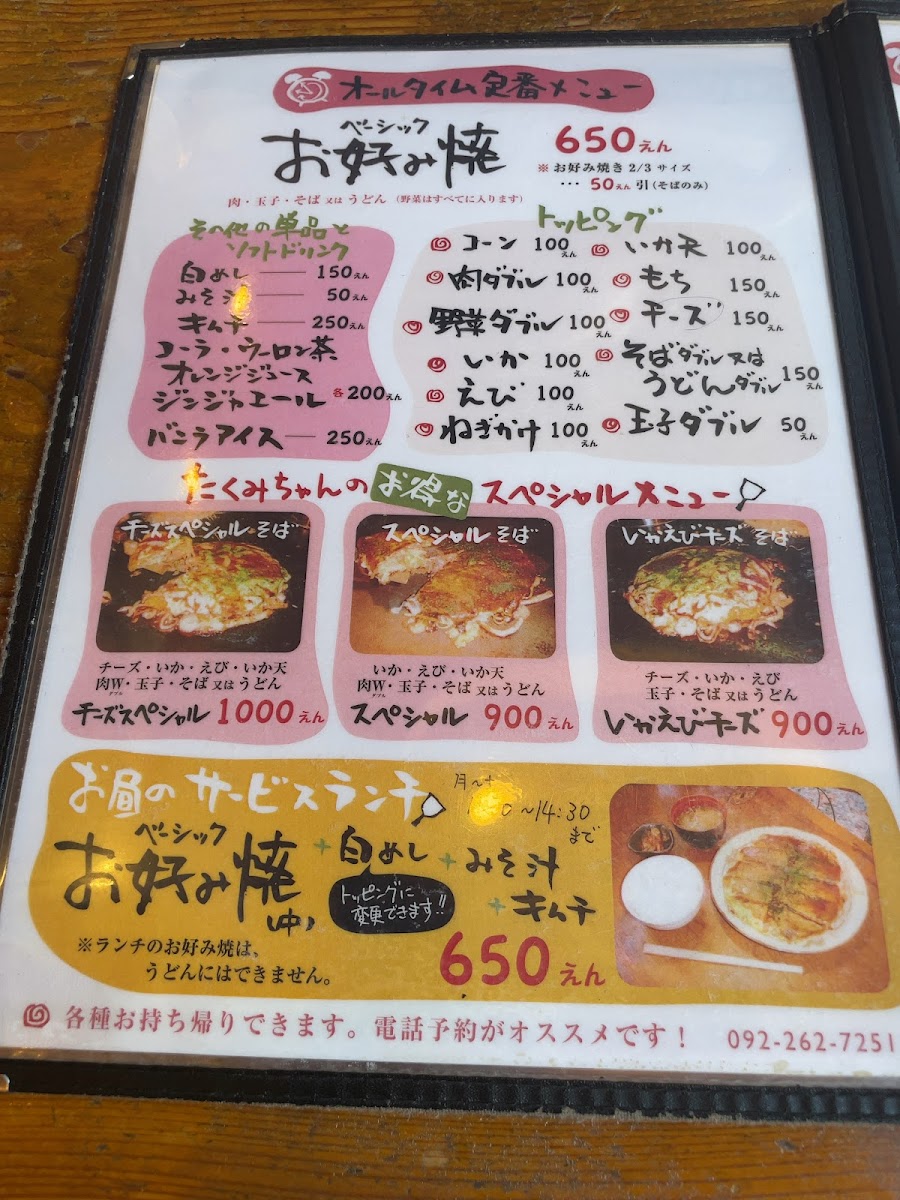 オールタイム定番メニュー
ベーシック
お好み焼 650えん
※ お好み焼き 2/3 サイズ
… 50えん 引(そばのみ)
肉・玉子・そば 又は うどん (野菜はすべてに入ります)
その他の単品と
ソフトドリンク
白めし 150えん
みそ汁 50えん
キムチ 250えん
コーラ・ウーロン茶
オレンジジュース
ジンジャエール 各200えん
バニラアイス 250えん
トッピング
コーン 100えん
肉ダブル 100えん
野菜ダブル 100えん
いか 100えん
えび 100えん
ねぎかけ 100えん
いか天 100えん
もち 150えん
チーズ 150えん
そばダブル又は
うどんダブル 150えん
玉子ダブル 50えん
たくみちゃんの お得な スペシャルメニュー
チーズスペシャル そば
チーズ・いか・えび・いか天
肉W・玉子・そば 又は うどん
ダブル
チーズスペシャル 1000えん
スペシャル そば
いか・えび・いか天
肉W・玉子・そば 又は うどん
ダブル
スペシャル 900えん
いかえびチーズ そば
チーズ・いか・えび
玉子・そば 又は うどん
いかえびチーズ 900えん
お昼の サービスランチ
月〜
〜14:30
まで
ベーシック
お好み焼(中) + 白めし + みそ汁
+ キムチ
トッピングに
変更できます!!
※ランチのお好み焼は、
うどんにはできません。
650えん
各種お持ち帰りできます。電話予約がオススメです! 092-262-7251